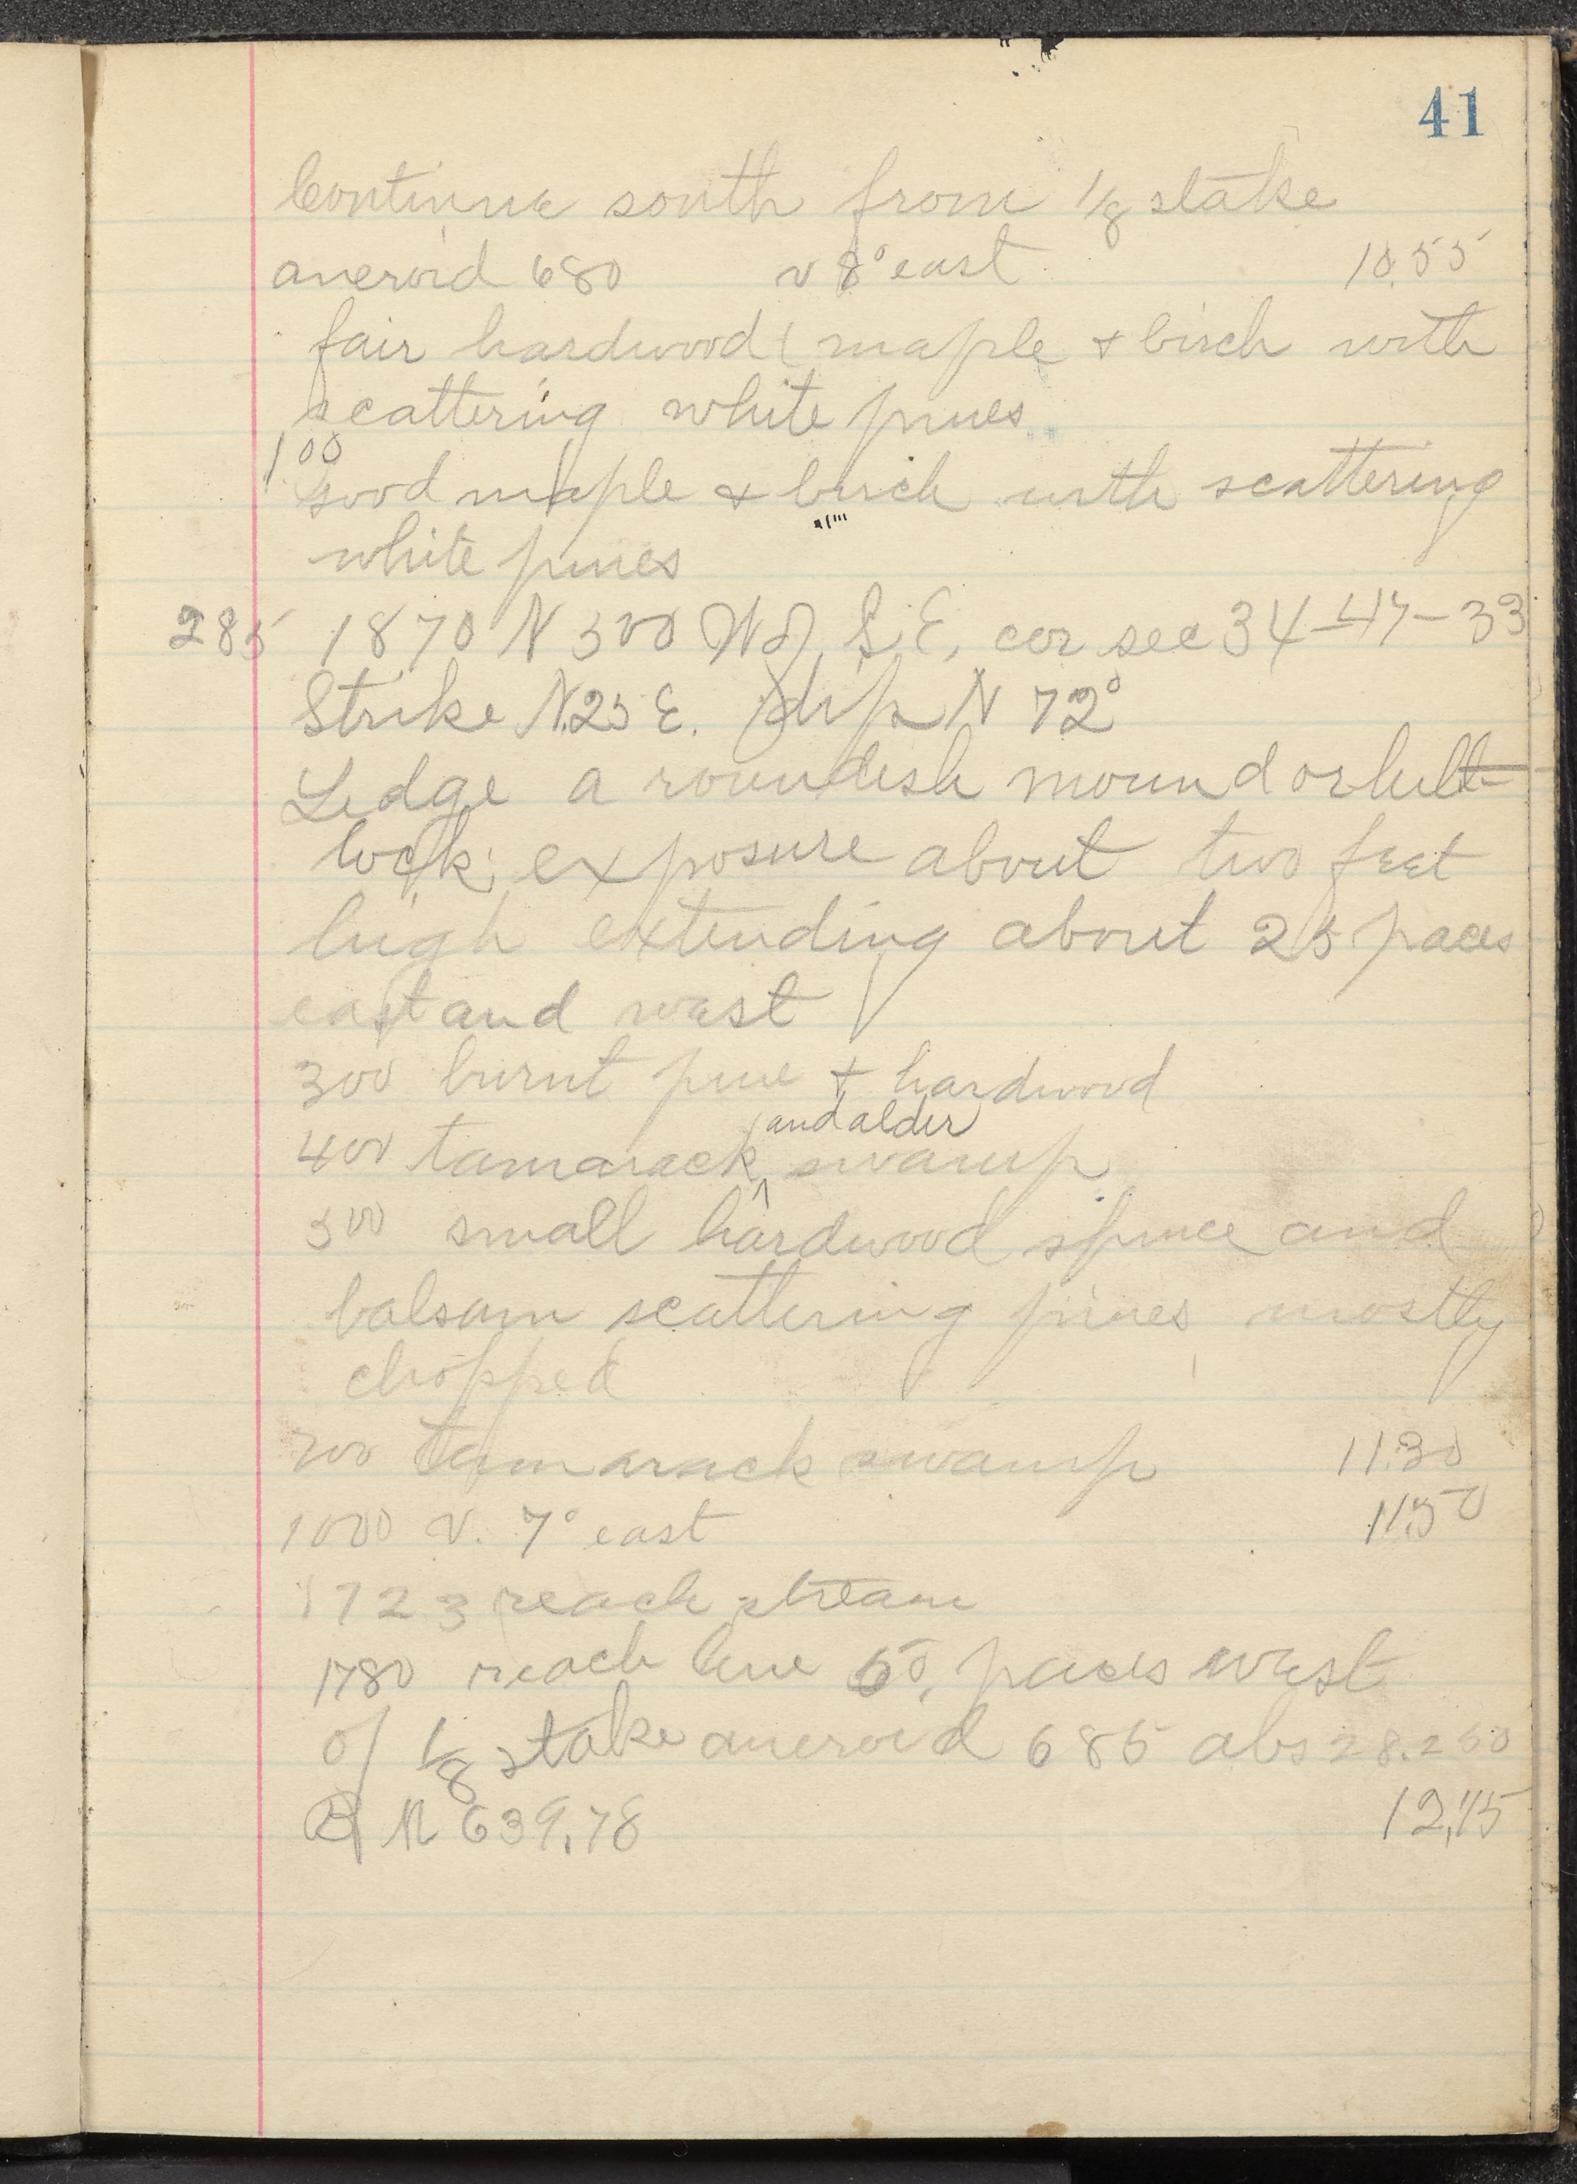 41
Continue south from 1/8 stake
aneroid 680 v 8° east 10.55
fair hardwood (maple & birch with
scattering white pines
100
Good maple & birch with scattering
white pines
285 1870 N 300 W of S.E. cor sec 34-47-33
Strike N.25 E. dip N 72°
Ledge a roundish mound or hill
lock; exposure about two feet
high extending about 25 paces
east and west
300 burnt pine + hardwood
and alder
400 tamarack ^ swamp
500 small hardwood spruce and
balsam scattering pines mostly
chopped
700 tamarack swamp 11.30
1000 v. 7° east 11.50
1723 reach stream
1780 reach line 60, paces west
of 1/8 stake aneroid 685 abs 28.250
639.78 12,15